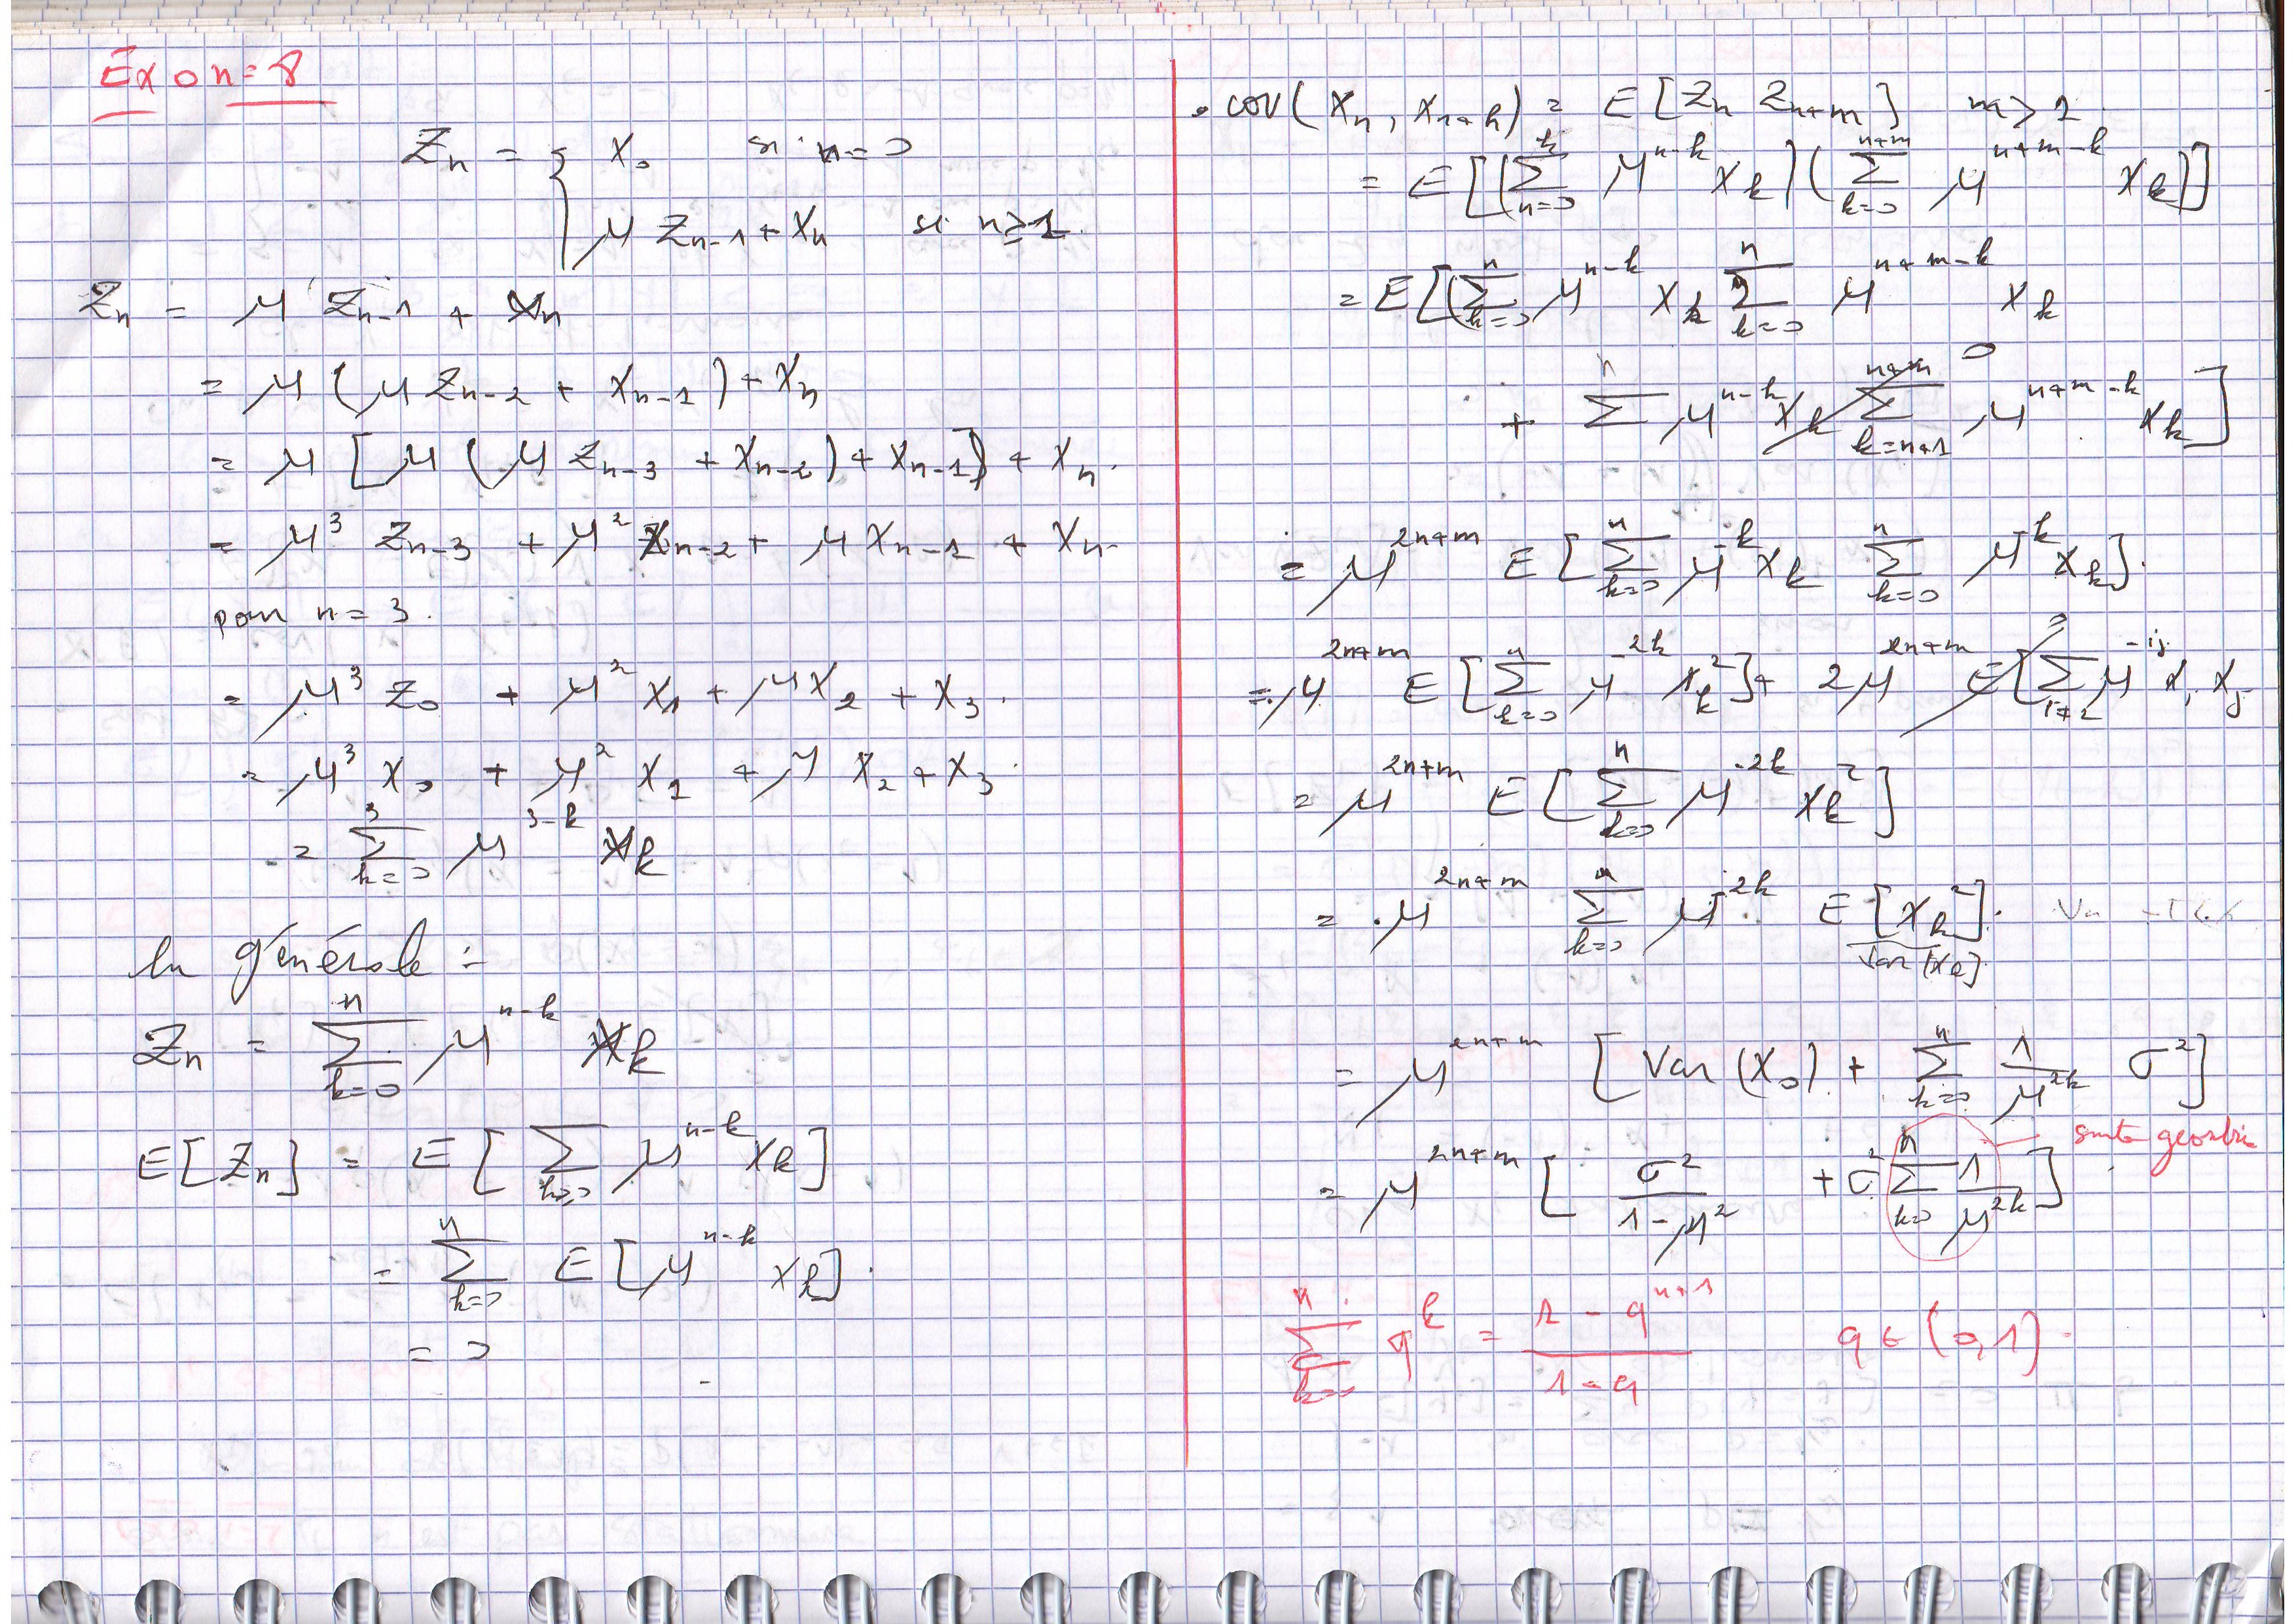 Exo n=8
Zn = { X0 si n=0
μ Zn-1 + Xn si n≥1.
Zn = μ Zn-1 + Xn
= μ (μ Zn-2 + Xn-1) + Xn
= μ [μ (μ Zn-3 + Xn-2) + Xn-1] + Xn.
= μ³ Zn-3 + μ² Xn-2 + μ Xn-1 + Xn.
pour n = 3.
= μ³ Z0 + μ² X1 + μ X2 + X3.
= μ³ X0 + μ² X1 + μ X2 + X3.
= Σ_{k=0}^{3} μ^{3-k} Xk
En générale :
Zn = Σ_{k=0}^{n} μ^{n-k} Xk
E[Zn] = E[Σ_{k=0} μ^{n-k} Xk]
= Σ_{k=0}^{n} E[μ^{n-k} Xk].
= 0
• cov(Xn, Xn+h) = E[Zn Zn+m] m≥1.
= E[(Σ_{n=0}^{k} μ^{n-k} Xk)(Σ_{k=0}^{n+m} μ^{n+m-k} Xk)]
= E[(Σ_{k=0}^{n} μ^{n-k} Xk Σ_{k=0}^{n} μ^{n+m-k} Xk
+ Σ^{n} μ^{n-k} Xk Σ_{k=n+1}^{n+m} μ^{n+m-k} Xk] 0
= μ^{2n+m} E[Σ_{k=0}^{n} μ^{-k} Xk Σ_{k=0}^{n} μ^{-k} Xk].
= μ^{2n+m} E[Σ_{k=0}^{n} μ^{-2k} Xk²] + 2μ^{2n+m} E[Σ_{i≠2} μ^{-ij} Xi Xj 0
= μ^{2n+m} E[Σ_{k=0}^{n} μ^{-2k} Xk²]
= μ^{2n+m} Σ_{k=0}^{n} μ^{-2k} E[Xk²].
Var(Xk)
= μ^{2n+m} [Var(X0) + Σ_{k=0}^{n} 1/μ^{2k} σ²]
= μ^{2n+m} [σ²/(1-μ²) + σ² Σ_{k=0}^{n} 1/μ^{2k}]
Σ_{k=0}^{n} q^k = (1 - q^{n+1})/(1-q) q ∈ (0,1).